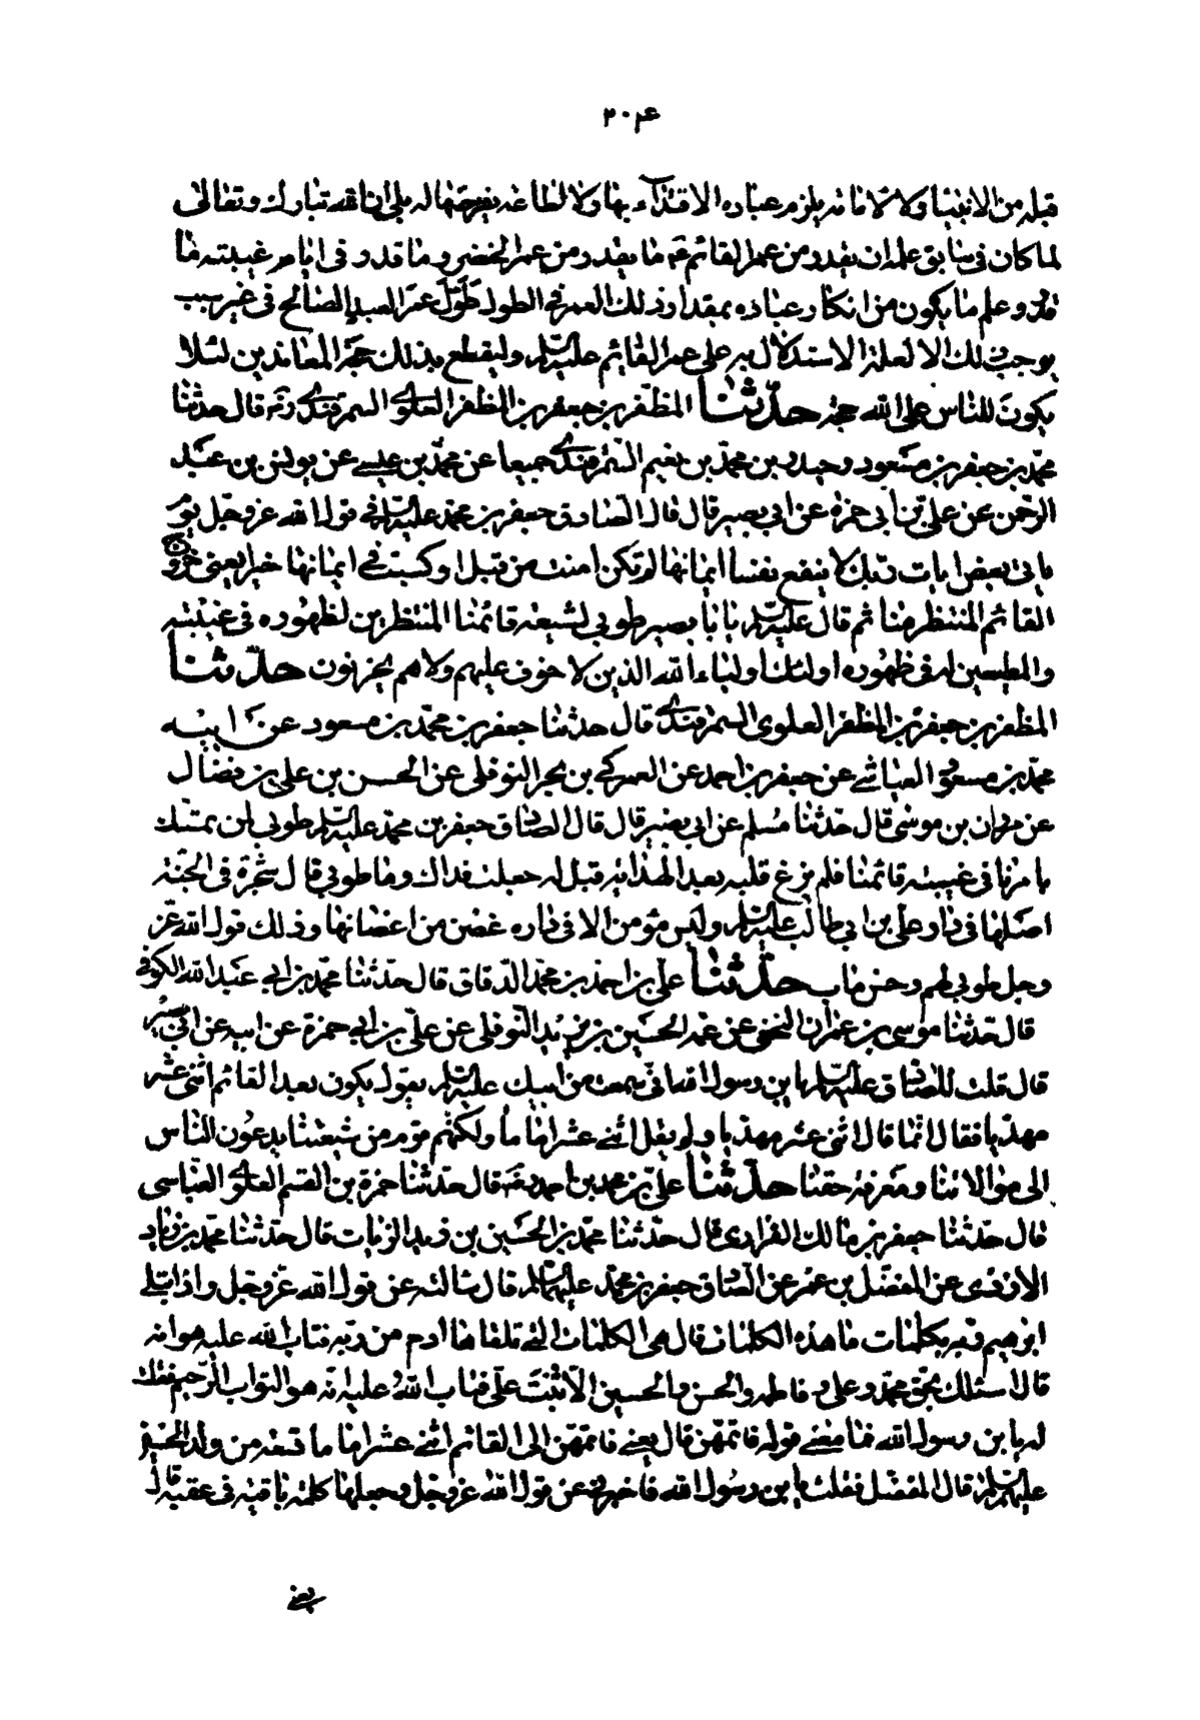 ٢٠۴
قبله من الانبیاء ولا لامامة یلزم عباده الاقتداء بها ولا لطاعة یفرضها له بلی ان الله تبارك وتعالی
لما کان فی سابق علمه ان یقدر من عمر القائم ع ما یقدر من عمر الخضر وما قدر فی ایام غیبته ما
قدر وعلم ما یکون من انکار عباده بمقدار ذلك العمر فی الطول طول عمر العبد الصالح فی غیر سبب
یوجب ذلك الا لعلة الاستدلال به علی عمر القائم علیه السلم ولیقطع بذلك حجة المعاندین لئلا
یکون للناس علی الله حجة حدّثنا المظفر بن جعفر بن المظفر العلوی السمرقندی رضه قال حدثنا
محمد بن جعفر بن مسعود وحیدر بن محمد بن نعیم السمرقندی جمیعا عن محمد بن مسعود عن یونس بن عبد
الرحمن عن علی بن ابی حمزة عن ابی بصیر قال قال الصادق جعفر بن محمد علیه السلم فی قول الله عز وجل یوم
یاتی بعض ایات ربك لا ینفع نفسا ایمانها لم تکن امنت من قبل او کسبت فی ایمانها خیرا یعنی خروج
القائم المنتظر منا ثم قال علیه السلم یا ابا بصیر طوبی لشیعة قائمنا المنتظرین لظهوره فی غیبته
والمطیعین له فی ظهوره اولئك اولیاء الله الذین لا خوف علیهم ولا هم یحزنون حدّثنا
المظفر بن جعفر بن المظفر العلوی السمرقندی قال حدثنا جعفر بن محمد بن مسعود عن ابیه
محمد بن مسعود العیاشی عن جعفر بن احمد عن العمرکی بن بحر النوفلی عن الحسن بن علی بن فضال
عن مروان بن موسی قال حدثنا مسلم عن ابی بصیر قال قال الصادق جعفر بن محمد علیه السلم طوبی لمن تمسك
بامرنا فی غیبة قائمنا فلم یزغ قلبه بعد الهدایة فقیل له جعلت فداك وما طوبی قال شجرة فی الجنة
اصلها فی دار علی بن ابی طالب علیه السلم ولیس مؤمن الا فی داره غصن من اغصانها وذلك قول الله عز
وجل طوبی لهم وحسن ماب حدّثنا علی بن احمد بن محمد الدقاق قال حدثنا محمد بن ابی عبد الله الکوفی
قال حدثنا موسی بن عمران النخعی عن عمه الحسین بن یزید النوفلی عن علی بن ابی حمزة عن ابیه عن ابی بصیر
قال قلت للصادق علیه السلم یا بن رسول الله انی سمعت من ابیك علیه السلم یقول یکون بعد القائم اثنی عشر
مهدیا فقال انما قال اثنی عشر مهدیا ولم یقل اثنی عشر اماما ولکنهم قوم من شیعتنا یدعون الناس
الی موالاتنا ومعرفة حقنا حدّثنا علی بن محمد بن احمد رضه قال حدثنا حمزة بن القسم العلوی العباسی
قال حدثنا جعفر بن مالك الفزاری قال حدثنا محمد بن الحسین بن زید الزیات قال حدثنا محمد بن زیاد
الازدی عن المفضل بن عمر عن الصادق جعفر بن محمد علیهما السلم قال سالته عن قول الله عز وجل واذ ابتلی
ابرهیم ربه بکلمات ما هذه الکلمات قال هی الکلمات التی تلقاها ادم من ربه فتاب الله علیه هو انه
قال اسئلك بحق محمد وعلی وفاطمة والحسن والحسین الا تبت علی فتاب الله علیه انه هو التواب الرحیم فقلت
له یا بن رسول الله فما معنی قوله فاتمهن قال یعنی فاتمهن الی القائم اثنی عشر اماما تسعة من ولد الحسین
علیهم السلم قال المفضل فقلت یا بن رسول الله فاخبرنی عن قول الله عز وجل وجعلها کلمة باقیة فی عقبه قال
یعنی